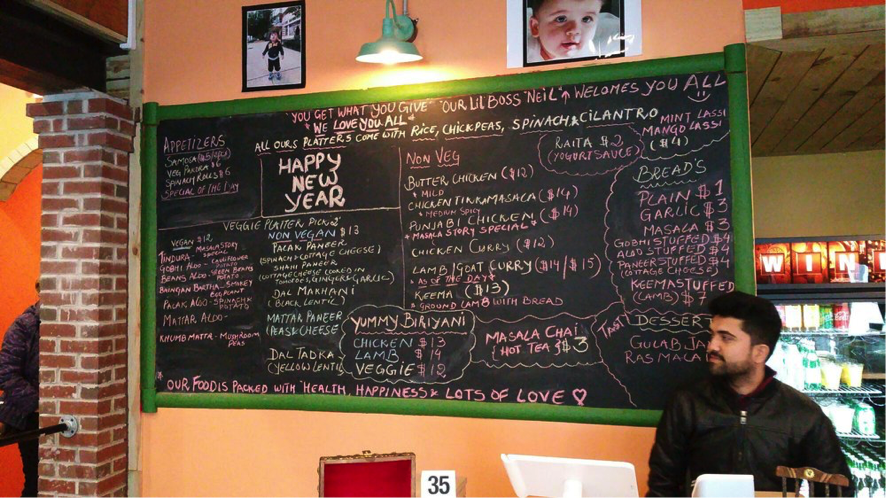 YOU GET WHAT YOU GIVE "OUR LIL BOSS "NEIL" ↑ WELOMES YOU ALL
* WE LOVE YOU ALL *
ALL OUR.S PLATTERS COME WITH RICE, CHICKPEAS, SPINACH & CILANTRO
APPETIZERS
SAMOSA
VEG PAKORA $6
SPINACH ROLLS $6
SPECIAL OF THE DAY
HAPPY
NEW
YEAR
VEGGIE PLATTER PICK 2
VEGAN $12
TINDURA - MASALA STORY
SPECIAL
GOBHI ALOO - CAULIFLOWER
POTATO
BEANS ALOO - GREEN BEANS
POTATO
BAINGAN BARTHA - SMOKEY
EGGPLANT
PALAK ALOO - SPINACH
POTATO
MATTAR ALOO -
KHUMB MATTA - MUSHROOM
PEAS
NON VEGAN $13
PALAK PANEER
(SPINACH & COTTAGE CHEESE)
SHAHI PANEER
(COTTAGE CHEESE COOKED IN
TOMATOES, GINGER & GARLIC)
DAL MAKHANI
(BLACK LENTIL)
MATTAR PANEER
(PEAS & CHEESE
DAL TADKA
(YELLOW LENTIL)
NON VEG
BUTTER CHICKEN ($12)
* MILD
CHICKEN TIKKA MASALA ($14)
* MEDIUM SPICY
PUNJABI CHICKEN ($14)
* MASALA STORY SPECIAL *
CHICKEN CURRY ($12)
LAMB/GOAT CURRY ($14/$15)
* AS OF THE DAY *
KEEMA ($13)
* GROUND LAMB WITH BREAD
YUMMY BIRIYANI
CHICKEN $13
LAMB $14
VEGGIE $12
MASALA CHAI
(HOT TEA) $3
RAITA $2
(YOGURT SAUCE)
MINT LASSI
MANGO LASSI
($4)
BREAD'S
PLAIN $1
GARLIC $3
MASALA $3
GOBHI STUFFED $4
ALOO STUFFED $4
PANEER STUFFED $4
(COTTAGE CHEESE)
KEEMA STUFFED
(LAMB) $7
TASTY DESSER
GULAB JA
RAS MALA
OUR FOOD IS PACKED WITH "HEALTH, HAPPINESS & LOTS OF LOVE ♡
WIN
35